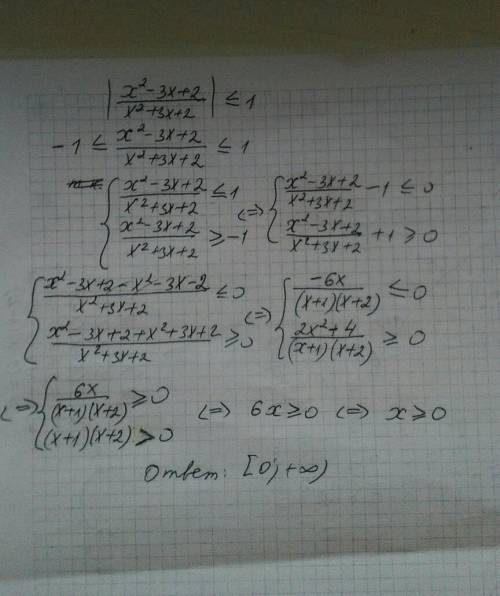 |x²-3x+2 / x²+3x+2| ≤ 1
-1 ≤ x²-3x+2 / x²+3x+2 ≤ 1
{ x²-3x+2 / x²+3x+2 ≤ 1 (=) { x²-3x+2 / x²+3x+2 - 1 ≤ 0
x²-3x+2 / x²+3x+2 ≥ -1 x²-3x+2 / x²+3x+2 + 1 ≥ 0
{ x²-3x+2-x²-3x-2 / x²+3x+2 ≤ 0 (=) { -6x / (x+1)(x+2) ≤ 0
x²-3x+2+x²+3x+2 / x²+3x+2 ≥ 0 2x²+4 / (x+1)(x+2) ≥ 0
(=) { 6x / (x+1)(x+2) ≥ 0 (=) 6x ≥ 0 (=) x ≥ 0
(x+1)(x+2) > 0
Ответ: [0; +∞)